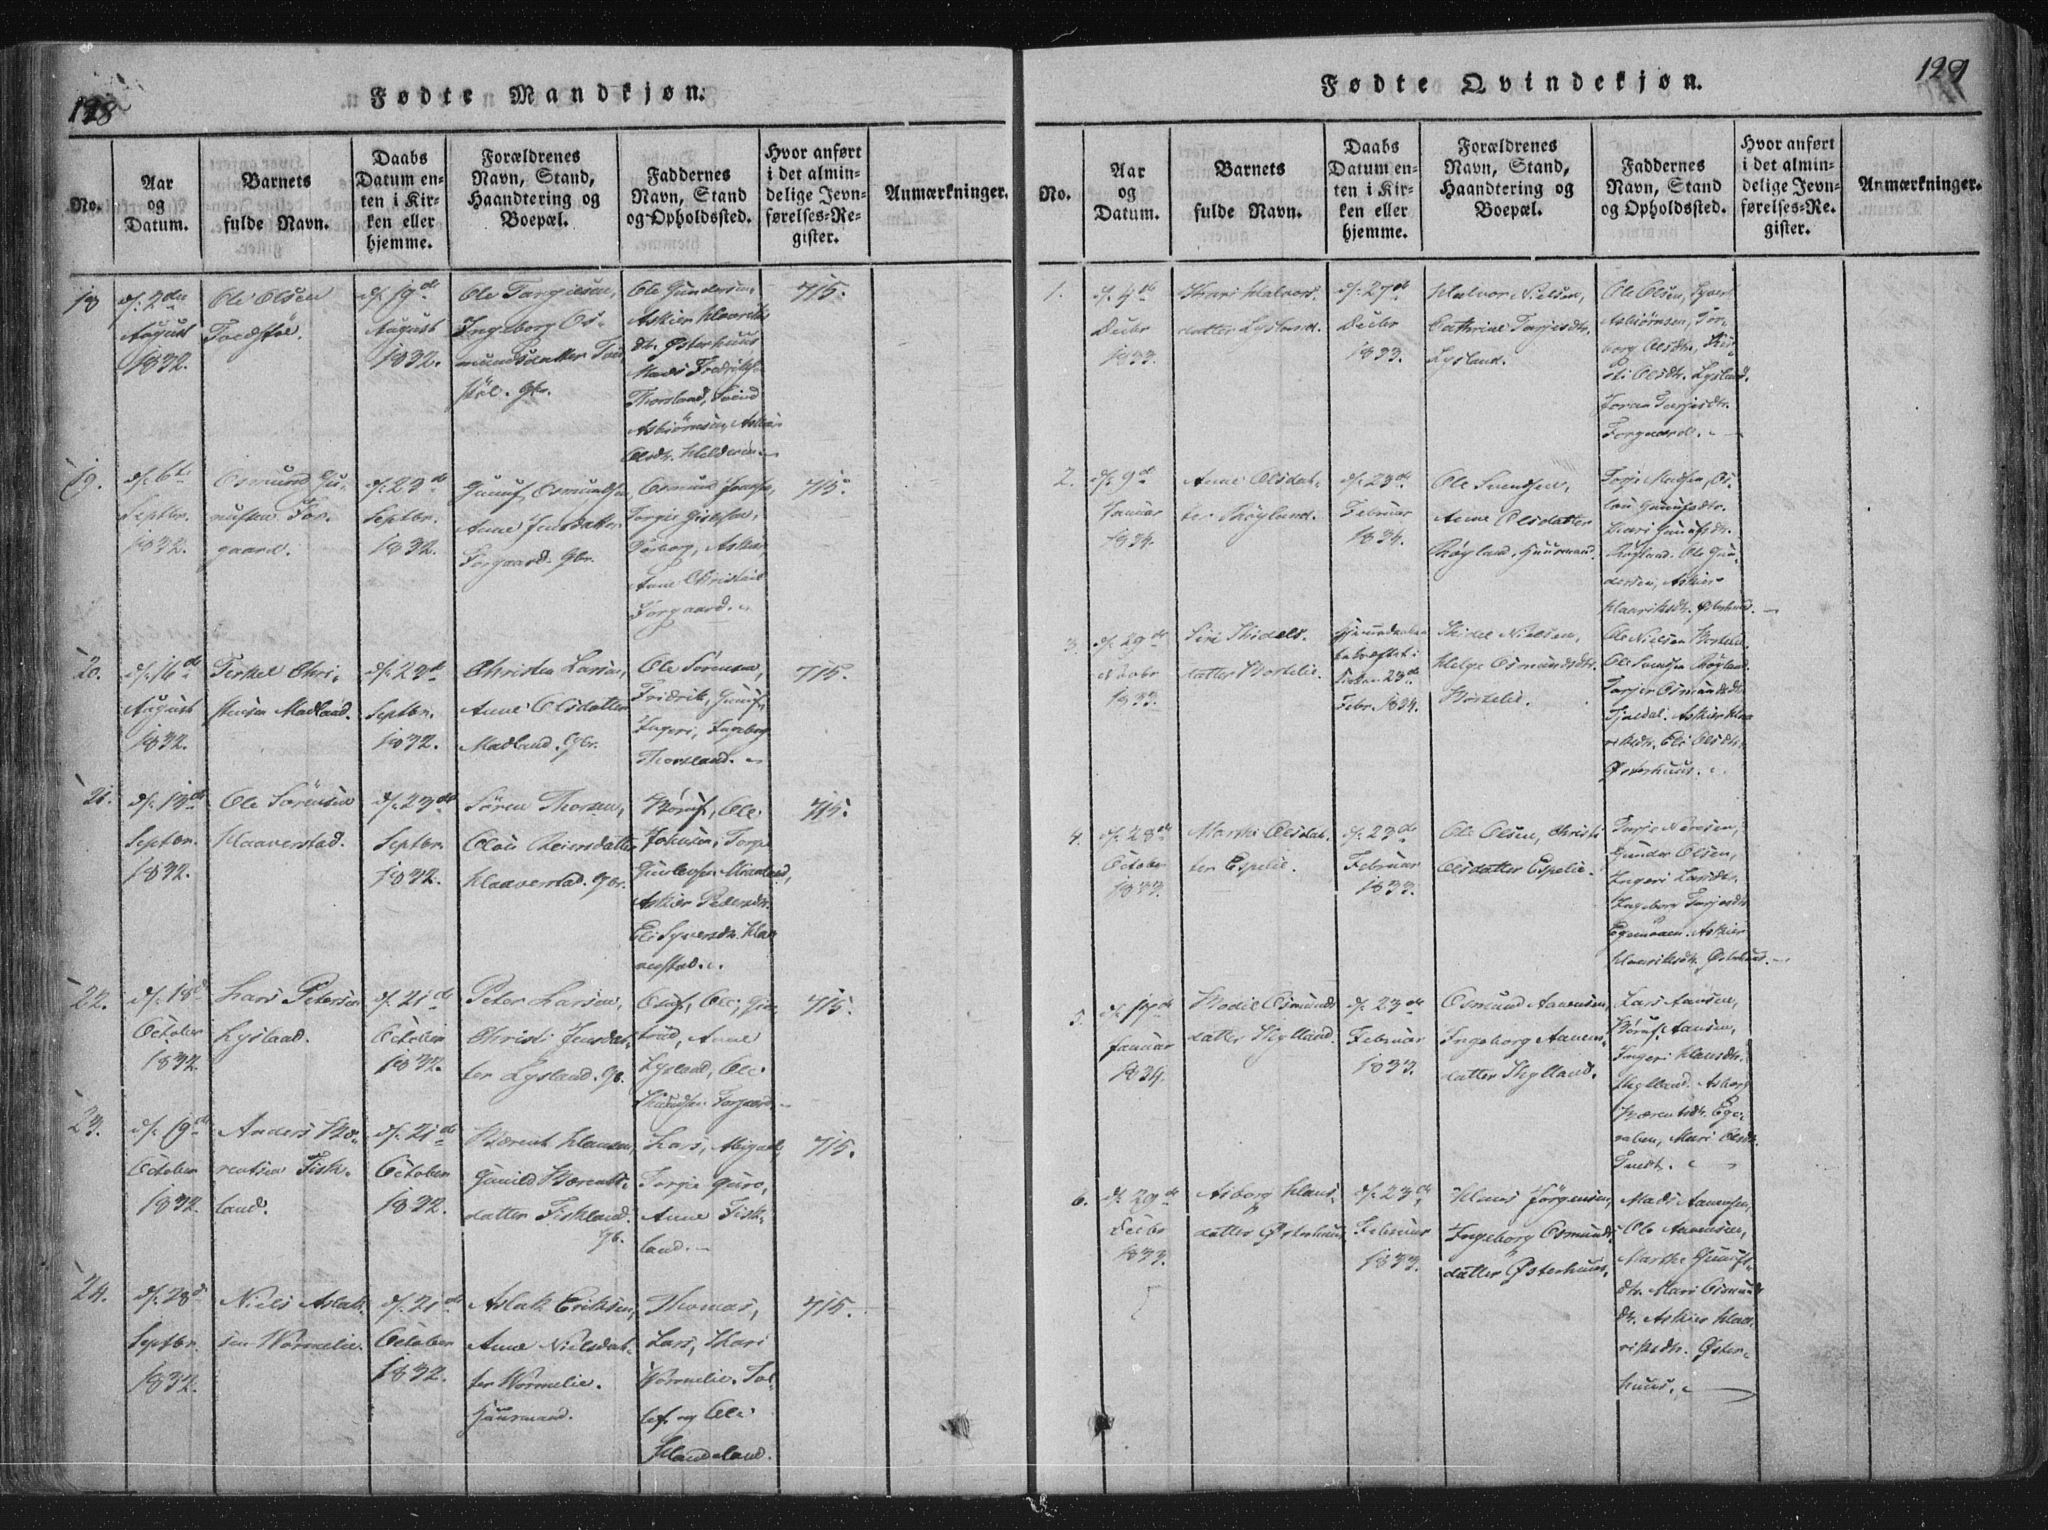 128
Fødte Mandkjøn.
No.
Aar
og
Datum.
Barnets
fulde Navn.
Daabs
Datum en-
ten i Kir-
ken eller
hjemme.
Forældrenes
Navn, Stand,
Haandtering og
Boepæl.
Faddernes
Navn, Stand
og Opholdssted.
Hvor anført
i det almin-
delige Jevn-
førelses-Re-
gister.
Anmærkninger.
18
d. 2den
August
1832.
Ole Olsen
d. 19de
August
1832.
Ole Targiesen,
Ingeborg Os-
mundsdatter
støl. Gbr.
Ole Gundersen,
Askier Klaveriks
dtr. Østerhuus
Mads Fredriksen
Thorsland, Svend
Asbiörnsen, Askier
Olsdtr.
715.
19.
d. 6te
Septbr.
1832.
Osmund Gu-
nufsen For-
gaard.
d. 23de
Septbr.
1832.
Gunuf Osmundsen,
Anne Jensdatter
Forgaard. Gbr.
Osmund
Torgie
Askier
Anne Christine
Forgaard.
715.
20.
d. 16de
August
1832.
Terkel Chri-
stensen Madland.
d. 23de
Septbr.
1832.
Christen Larsen,
Anne Olsdatter
Madland. Gbr.
Ole Sörensen,
Fridrik, Gunuf,
Ingeri, Ingeborg
Thorsland.
715.
21.
d. 13de
Septbr.
1832.
Ole Sörensen
Klaaverstad.
d. 23de
Septbr.
1832.
Sören Thorsen,
Olou Reiersdatter
Klaaverstad. Gbr.
Ole
Torje
Askier Pedersdtr.
Eli Syversdtr. Klaa-
verstad.
715.
22.
d. 18d
October
1832.
Lars Petersen
Lysland.
d. 21de
October
1832.
Peter Larsen,
Christi Jensdat-
ter Lysland. Gb.
Osuf, Ole, Gu-
Anne
Lysland, Ole
Forgaard.
715.
23.
d. 19de
October
1832.
Anders Bæ-
rentsen Fisk-
land.
d. 21de
October
1832.
Bærent Klausen,
Gunild Bærents-
datter Fiskland.
Gb.
Lars,
Torgie, Guro,
Anne Fisk-
land.
715.
24.
d. 28d
Septbr.
1832.
Niels Aslak-
sen Wormelie.
d. 21de
October
1832.
Aslak Eriksen,
Anne Nielsdat-
ter Wormelie.
Huusmand.
Thomas,
Lars, Kari
Wormelie. Tol-
lef og Ole
715.
129
Fødte Qvindekjøn.
No.
Aar
og
Datum.
Barnets
fulde Navn.
Daabs
Datum en-
ten i Kir-
ken eller
hjemme.
Forældrenes
Navn, Stand,
Haandtering og
Boepæl.
Faddernes
Navn, Stand
og Opholdssted.
Hvor anført
i det almin-
delige Jevn-
førelses-Re-
gister.
Anmærkninger.
1.
d. 4de
Decbr
1833.
Kari Halvors-
datter Lysland.
d. 27de
Decbr
1833.
Halvor Nielsen,
Cathrine Tarjesdtr.
Lysland.
Ole Olsen, Syvert
Asbiörnsen, Tor-
borg Olsdtr., Kir-
sti Olsdtr. Lysland.
Joran Tarjesdtr.
Forgaard.
2.
d. 9de
Januar
1834.
Anne Olsdat-
ter Röyland.
d. 23de
Februar
1834.
Ole Svendsen,
Anne Olsdatter
Röyland. Huusmand.
Torje Madsen, Os-
lou Gunufsdtr.
Kari Gunufsdtr.
Röyland. Ole Gun-
dersen, Askier
Klaveriksdtr. Østerhuus.
3.
d. 29de
Novbr
1833.
Siri Kidels-
datter Bortelie.
Hjemmedaaben
bekræftet i
Kirken 23de
Febr. 1834.
Kidel Nielsen,
Helge Osmundsdtr.
Bortelie.
Ole Nielsen Bortelie.
Ole Svendsen Röyland.
Tarjer Osmundsdtr.
Askier Klave-
riksdtr. Eli Olsdtr.
Østerhuus.
4.
d. 28de
October
1833.
Marthe Olsdat-
ter Espelie.
d. 23de
Februar
1833.
Ole Olsen, Christi
Olsdatter Espelie.
Torje
Gunder Olsen,
Ingeri Larsdtr.
Ingeborg Tarjesdtr.
Egenaaen. Askier
Klaveriksdtr. Østerhuus.
5.
Januar
1834.
Bodil Osmunds
datter Kylland.
d. 23de
Februar
1833.
Osmund Aanensen,
Ingeborg Aanens-
datter Kylland.
Lars Aansen,
Aansen,
Ingeri Klausdtr.
Kylland. Asborg
Bærentsdtr. Ege-
Mari Olsdtr.
Tvedt.
6.
d. 29de
Decbr
1833.
Asborg Klaus-
datter Østerhuus.
d. 23de
Februar
1833.
Klaus Jörgensen,
Ingeborg Osmunds
datter Østerhuus.
Mads Aanensen,
Ole Aanensen,
Marthe Gunufs-
dtr. Mari Osmunds
dtr. Askier Klave-
riksdtr. Øster-
huus.